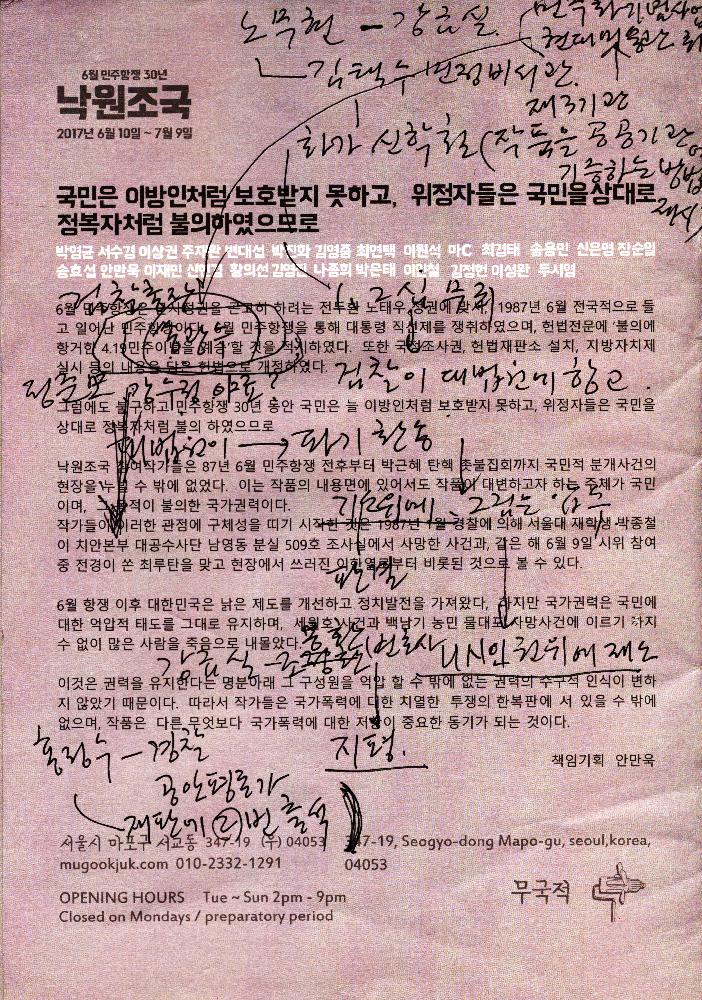 노무현 - 강금실
김택수 변정비서관
제3기관
화가 신학철 (작품을 공공기관에
기증하는 방법
6월 민주항쟁 30년
낙원조국
2017년 6월 10일 ~ 7월 9일
국민은 이방인처럼 보호받지 못하고, 위정자들은 국민을상대로
점복자처럼 불의하였으므로
박영균 서수경 이상권 주재환 변대섭 박진화 김영중 최연택 이원석 마C 최경태 송용민 신은영 장순일
송효섭 안만욱 이재민 신학철 황의선 김영진 나종희 박은태 이인철 김정헌 이성완 두시영
6월 민주항쟁은 군사정권을 곤고히 하려는 전두환 노태우 정권에 맞서, 1987년 6월 전국적으로 들
고 일어난 민주항쟁이다. 6월 민주항쟁을 통해 대통령 직선제를 쟁취하였으며, 헌법전문에 '불의에
항거한 4.19민주이념을 계승'할 것을 적시하였다. 또한 국정조사권, 헌법재판소 설치, 지방자치제
실시 등의 내용을 담은 헌법으로 개정하였다.
검찰이 대법원에 항고.
그럼에도 불구하고 민주항쟁 30년 동안 국민은 늘 이방인처럼 보호받지 못하고, 위정자들은 국민을
상대로 정복자처럼 불의 하였으므로
대법원이 → 파기 환송
낙원조국 참여작가들은 87년 6월 민주항쟁 전후부터 박근혜 탄핵 촛불집회까지 국민적 분개사건의
현장을 누빌 수 밖에 없었다. 이는 작품의 내용면에 있어서도 작품이 대변하고자 하는 주체가 국민
이며, 그 목적이 불의한 국가권력이다.
작가들이 이러한 관점에 구체성을 띠기 시작한 것은 1987년 1월 경찰에 의해 서울대 재학생 박종철
이 치안본부 대공수사단 남영동 분실 509호 조사실에서 사망한 사건과, 같은 해 6월 9일 시위 참여
중 전경이 쏜 최루탄을 맞고 현장에서 쓰러진 이한열로부터 비롯된 것으로 볼 수 있다.
6월 항쟁 이후 대한민국은 낡은 제도를 개선하고 정치발전을 가져왔다, 하지만 국가권력은 국민에
대한 억압적 태도를 그대로 유지하며, 세월호 사건과 백남기 농민 물대포 사망사건에 이르기 까지
수 없이 많은 사람을 죽음으로 내몰았다.
강금실 - 조광희 변호사
UN인권위에 제소
이것은 권력을 유지한다는 명분아래 그 구성원을 억압 할 수 밖에 없는 권력의 수구적 인식이 변하
지 않았기 때문이다. 따라서 작가들은 국가폭력에 대한 치열한 투쟁의 한복판에 서 있을 수 밖에
없으며, 작품은 다른 무엇보다 국가폭력에 대한 저항이 중요한 동기가 되는 것이다.
지평.
책임기획 안만욱
홍정수 - 경찰
공안평론가
재판에 2번 출석
서울시 마포구 서교동 347-19 (우) 04053
347-19, Seogyo-dong Mapo-gu, seoul,korea,
04053
mugookjuk.com 010-2332-1291
OPENING HOURS Tue ~ Sun 2pm - 9pm
Closed on Mondays / preparatory period
무국적